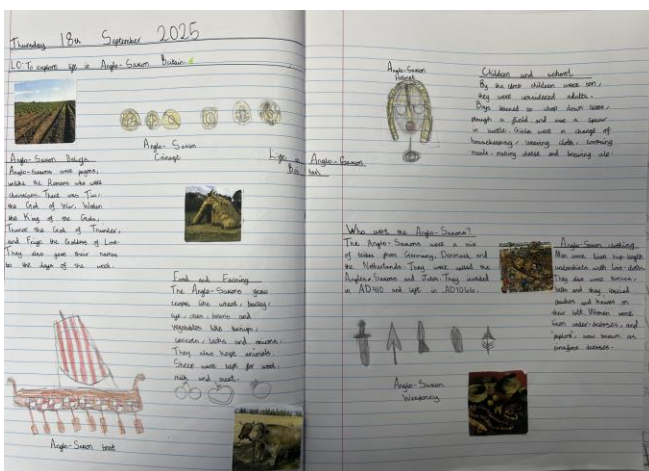 Thursday 18th September 2025
LO: To explore life in Anglo-Saxon Britain.
Anglo-Saxon
Coinage
Anglo-Saxon Beliefs
Anglo-Saxons were pagans,
unlike the Romans who were
christians. There was Tiw:
the God of War, Woden
the King of the Gods,
Thunor the God of Thunder,
and Frige the Goddess of Love.
They also gave their names
to the days of the week.
Life in Anglo-Saxon
Britain
Food and Farming
The Anglo-Saxons grew
crops like wheat, barley,
rye, oats, beans and
vegetables like turnips,
carrots, leeks and onions.
They also kept animals.
Sheep were kept for wool,
milk and meat.
Anglo-Saxon boat
Anglo-Saxon
Helmet
Children and school
By the time children were ten,
they were considered adults.
Boys learned to chop down trees,
plough a field and use a spear
in battle. Girls were in charge of
housekeeping, weaving cloth, cooking
meals, making cheese and brewing ale.
Who were the Anglo-Saxons?
The Anglo-Saxons were a mix
of tribes from Germany, Denmark, and
the Netherlands. They were called the
Angles, Saxons and Jutes. They
in AD410 and left in AD1066.
Anglo-Saxon clothing
Men wore
They also wore tunics,
belts and they carried
pouches and knives on
their belt. Women wore
under-dresses, and
was known as
dresses.
Anglo-Saxon
Weaponry